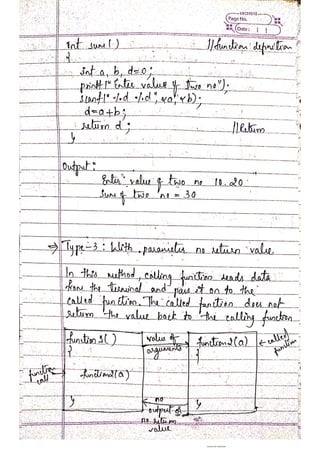 Page No.
Date: | |
int sum( ) //function definition
{
int a, b, d=0;
printf(" Enter value of two no");
scanf(" %d %d", &a, &b);
d=a+b;
return d; //Return
}
Output:
Enter value of two no 10.20
Sum of two no = 30
⇒ Type-3: With parameter no return value
In this method, calling function reads data
from the terminal and pass it on to the
called function. The called function does not
return the value back to the calling function
function 1( ) value of function2(a) ← called function
{ arguments {
function call → function2(a)
} no }
output of
no return
value